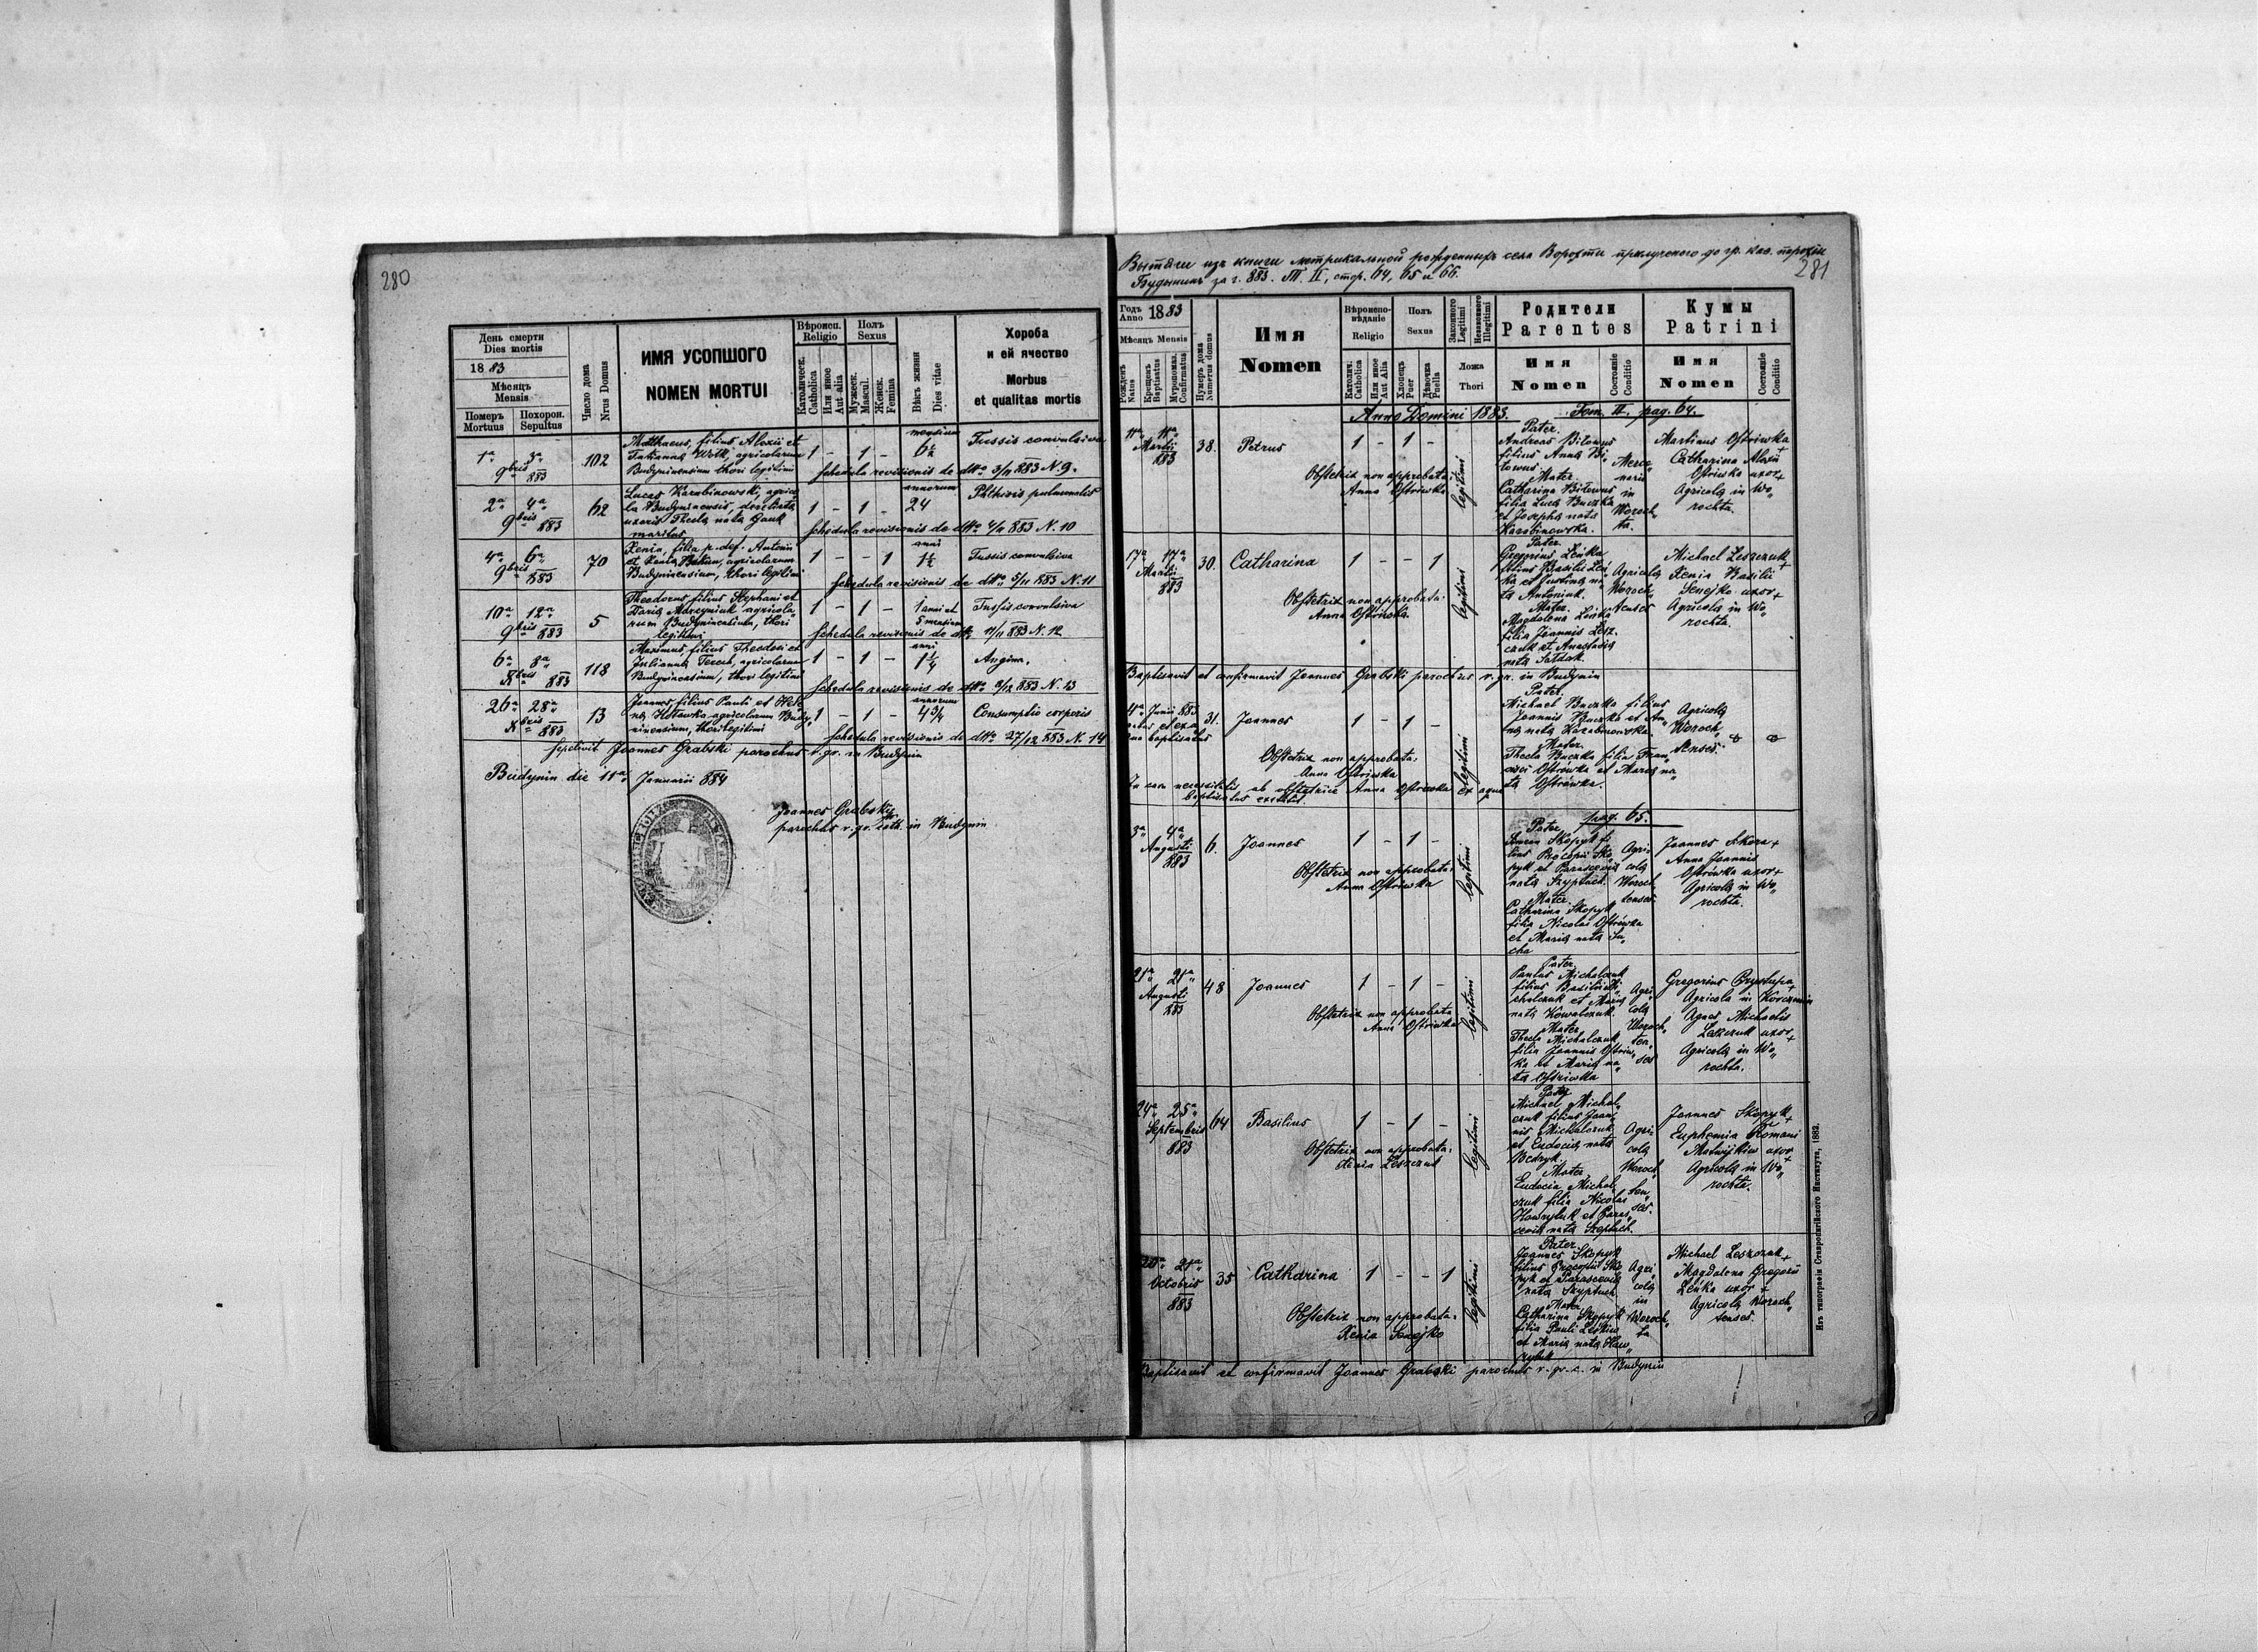 280
День смерти
Dies mortis
1883
Мѣсяцъ
Mensis
Померъ
Mortuus
Похорон.
Sepultus
Число дома
Nrus Domus
ИМЯ УСОПШОГО
NOMEN MORTUI
Вѣроисп.
Religio
Католическ.
Catholica
Или иное
Aut alia
Полъ
Sexus
Мужеск.
Mascul.
Женск.
Femina
Вѣкъ жизни
Dies vitae
Хороба
и ей ячество
Morbus
et qualitas mortis
1a 3a
9bris 883
102
Matthaeus, filius Alexii et
Tatianna Wolk, agricolarum
Budyninensium thori legitimi
1 - 1 -
mensium
6½
Tussis convulsiva
Schedula revisionis de dtto 3/11 883 N. 9.
2a 4a
9bris 883
62
Lucas Karabinowski, agrico
la Budyninensis, derelicta
uxoris Thecla nata Gauk
maritus
1 - 1 -
annorum
24
Phthisis pulmonalis
Schedula revisionis de dtto 4/11 883 N. 10
4a 6a
9bris 883
70
Xenia, filia p. def. Antonii
agricolarum
Budyninensium, thori legitimi
1 - - 1
anni
1½
Tussis convulsiva
Schedula revisionis de dtto 5/11 883 N. 11
10a 12a
9bris 883
5
Theodorus, filius Stephani et
Daria Marcyniuk agricola„
rum Budyninensium, thori
legitimi
1 - 1 -
1 anni et
5 mensium
Tussis convulsiva
Schedula revisionis de dtto 11/11 883 N. 12
6a 8a
Xbris 883
118
Maximus, filius Theodori et
Julianna Terech, agricolarum
Budyninensium, thori legitimi
1 - 1 -
anni
1¼
Angina.
Schedula revisionis de dtto 8/12 883 N. 13
26a 28a
Xbris 883
13
Joannes filius Pauli et Hele
na Hotawka agricolarum Budy„
ninensium, thori legitimi
1 - 1 -
annorum
4¾
Consumptio corporis
Schedula revisionis de dtto 27/12 883 N. 14
Sepelivit Joannes Grabski parochus r. gr. in Budynin
Budynin die 11a Januarii 884
Joannes Grabski
parochus r. gr. cath. in Budynin
Вытяги изъ книги метрикальной рожденныхъ села Ворохти прилученого до гр. каѳ. парохіи
Будынинъ за г. 883. Т. II, стр. 64, 65 и 66.
281
Годъ
Anno 1883
Мѣсяцъ Mensis
Рожденъ
Natus
Крещенъ
Baptisatus
Мѵропомаз.
Confirmatus
Нумеръ дома
Numerus domus
Имя
Nomen
Вѣроиспо-
вѣданіе
Religio
Католич:
Catholica
Или иное
Aut Alia
Полъ
Sexus
Хлопецъ
Puer
Дѣвочка
Puella
Законного
Legitimi
Незаконного
Illegitimi
Ложа
Thori
Родители
Parentes
Имя
Nomen
Состояніе
Conditio
Кумы
Patrini
Имя
Nomen
Состояніе
Conditio
Anno Domini 1883. Tom. II. pag. 64.
11a 11a
Martii
883
38.
Petrus
1 - 1 -
Obstetrix non approbata:
Anna Ostriwka
legitimi
Pater.
Andreas Bilowus
filius Anna Bi„
lowus.
Mater.
Catharina Bilowus
filia Luca Buczka
et Josepha nata
Karabinowska.
Merce„
narii
in
Woroch„
ta.
Martinus Ostriwka +
Catharina Alexii
Ostriwka uxor +
Agricola in Wo„
rochta.
17a 17a
Martii
883
30.
Catharina
1 - - 1
Obstetrix non approbata:
Anna Ostriwka.
legitimi
Pater.
Gregorius Leńka
filius Basilii Leń„
ka et Justina na„
ta Antoniuk.
Mater.
Magdalena Leńka
filia Joannis Lesz„
czuk et Anastasia
nata Saldak.
Agricola
Woroch„
tenses
Michael Leszczuk +
Xenia Basilii
Senejko uxor +
Agricola in Wo„
rochta.
Baptisavit et confirmavit Joannes Grabski parochus r. gr. in Budynin
4a Junii 883
natus et ex a„
qua baptisatus
31.
Joannes
1 - 1 -
Obstetrix non approbata:
Anna Ostriwka
In casu necessitatis ab obstetrice Anna Ostriwka ex aqua
baptisatus
legitimi
Pater.
Michael Buczko filius
Joannis Buczko et An„
na nata Karabinowska.
Mater.
Thecla Buczko filia Fran„
cisci Ostriwka et Maria na„
ta Ostriwka.
Agricola
Woroch„
tenses.
pag. 65.
3a 4a
Augusti
883
6.
Joannes
1 - 1 -
Obstetrix non approbata:
Anna Ostriwka
legitimi
Pater
Simeon Skopyk fi„
lius Procopii Sko„
pyk et Parascevia
nata Szyptuch.
Mater.
Catharina Skopyk
filia Nicolai Ostriwka
et Maria nata Su„
cha
Agri„
cola
Woroch
tenses
Joannes Sikora +
Anna Joannis
Ostriwka uxor +
Agricola in Wo„
rochta.
21a 21a
Augusti
883
48
Joannes
1 - 1 -
Obstetrix non approbata
Anna Ostriwka
legitimi
Pater.
Paulus Michalczuk
filius Basilii Mi„
chalczuk et Maria
nata Kowalczuk.
Mater
Thecla Michalczuk
filia Joannis Ostriw„
ka et Maria na„
ta Ostriwka
Agri„
cola
Woroch„
ten„
ses
Gregorius Przystupa +
Agricola in Korczmin
Agnes Michaelis
Leszczuk uxor +
Agricola in Wo„
rochta.
24a 25a
Septembris
883
64
Basilius
1 - 1 -
Obstetrix non approbata:
Xenia Leszczuk
legitimi
Pater
Michael Michal„
czuk filius Joan„
nis Michalczuk
et Eudocia nata
Bedryk.
Mater
Eudocia Michal„
czuk filia Nicolai
Hawryluk et Paras„
cevia nata Szeptuch.
Agri„
cola
Woroch„
ten„
ses.
Joannes Skopyk +
Euphemia Romani
Matwijkiw uxor +
Agricola in Wo„
rochta.
20a 21a
Octobris
883
35
Catharina
1 - - 1
Obstetrix non approbata:
Xenia Senejko
legitimi
Pater.
Joannes Skopyk
filius Procopii Sko„
pyk et Parascevia
nata Szyptuch
Mater
Catharina Skopyk
filia Pauli Leskiw
et Maria nata Haw„
ryluk
Agri„
cola
in
Woroch„
ta
Michael Leszczuk +
Magdalena Gregorii
Leńka uxor +
Agricola Woroch„
tenses.
Baptisavit et confirmavit Joannes Grabski parochus r. gr. c. in Budynin
Изъ типографіи Ставропигійского Института, 1882.